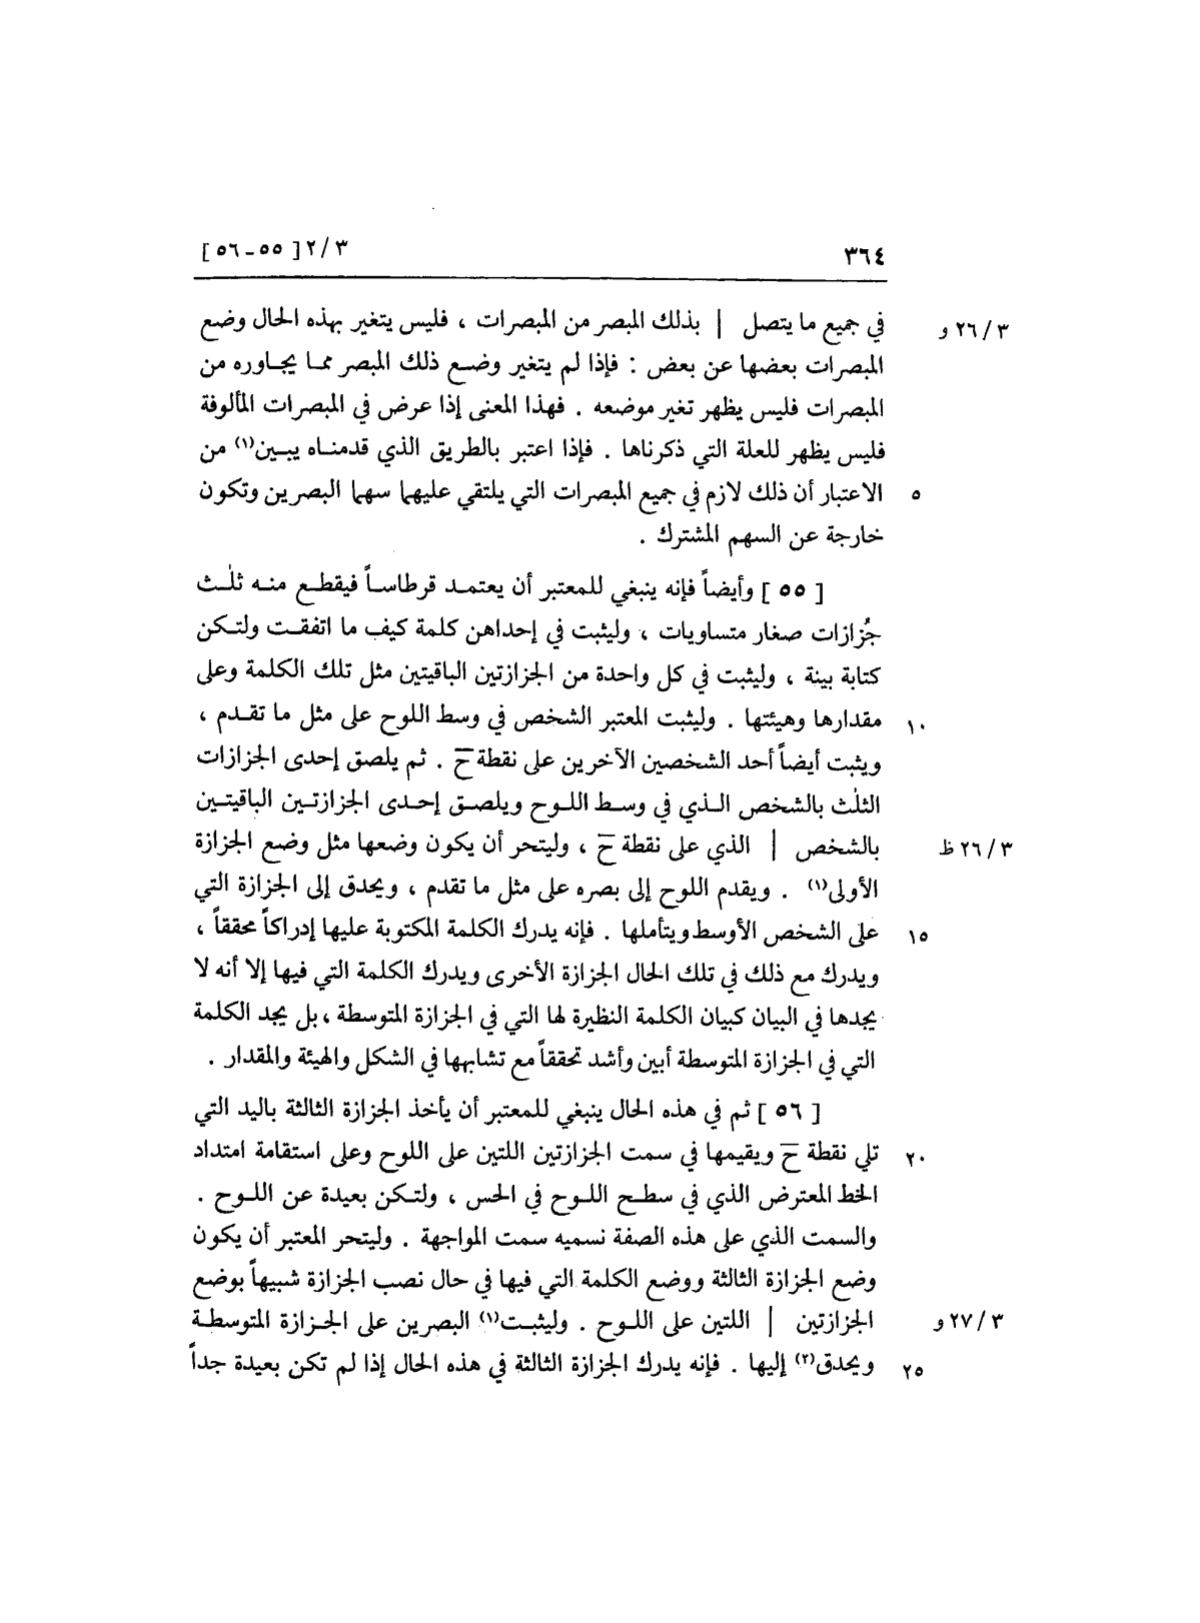 ٣٦٤ ٢/٣ [ ٥٥ - ٥٦ ]
في جميع ما يتصل | بذلك المبصر من المبصرات ، فليس يتغير بهذه الحال وضع ٢٦/٣ و
المبصرات بعضها عن بعض : فإذا لم يتغير وضع ذلك المبصر مما يجاوره من
المبصرات فليس يظهر تغير موضعه . فهذا المعنى إذا عرض في المبصرات المألوفة
فليس يظهر للعلة التي ذكرناها . فإذا اعتبر بالطريق الذي قدمناه يبين(١) من
الاعتبار أن ذلك لازم في جميع المبصرات التي يلتقي عليهما سهما البصرين وتكون ٥
خارجة عن السهم المشترك .
[ ٥٥ ] وأيضاً فإنه ينبغي للمعتبر أن يعتمد قرطاساً فيقطع منه ثلٰث
جُزازات صغار متساويات ، وليثبت في إحداهن كلمة كيف ما اتفقت ولتكن
كتابة بينة ، وليثبت في كل واحدة من الجزازتين الباقيتين مثل تلك الكلمة وعلى
مقدارها وهيئتها . وليثبت المعتبر الشخص في وسط اللوح على مثل ما تقدم ، ١٠
ويثبت أيضاً أحد الشخصين الآخرين على نقطة ح̅ . ثم يلصق إحدى الجزازات
الثلٰث بالشخص الذي في وسط اللوح ويلصق إحدى الجزازتين الباقيتين
بالشخص | الذي على نقطة ح̅ ، وليتحر أن يكون وضعها مثل وضع الجزازة ٢٦/٣ ظ
الأولى(١) . ويقدم اللوح إلى بصره على مثل ما تقدم ، ويحدق إلى الجزازة التي
على الشخص الأوسط ويتأملها . فإنه يدرك الكلمة المكتوبة عليها إدراكاً محققاً ، ١٥
ويدرك مع ذلك في تلك الحال الجزازة الأخرى ويدرك الكلمة التي فيها إلا أنه لا
يجدها في البيان كبيان الكلمة النظيرة لها التي في الجزازة المتوسطة ، بل يجد الكلمة
التي في الجزازة المتوسطة أبين وأشد تحققاً مع تشابهها في الشكل والهيئة والمقدار .
[ ٥٦ ] ثم في هذه الحال ينبغي للمعتبر أن يأخذ الجزازة الثالثة باليد التي
تلي نقطة ح̅ ويقيمها في سمت الجزازتين اللتين على اللوح وعلى استقامة امتداد ٢٠
الخط المعترض الذي في سطح اللوح في الحس ، ولتكن بعيدة عن اللوح .
والسمت الذي على هذه الصفة نسميه سمت المواجهة . وليتحر المعتبر أن يكون
وضع الجزازة الثالثة ووضع الكلمة التي فيها في حال نصب الجزازة شبيهاً بوضع
الجزازتين | اللتين على اللوح . وليثبت(١) البصرين على الجزازة المتوسطة ٢٧/٣ و
ويحدق(٢) إليها . فإنه يدرك الجزازة الثالثة في هذه الحال إذا لم تكن بعيدة جداً ٢٥